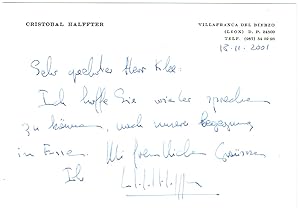 CRISTOBAL HALFFTER
VILLAFRANCA DEL BIERZO
(LEON) D. P. 24500
TELF. (987) 54 02 06
18.11.2001
Sehr geehrter Herr Klee:
Ich hoffe Sie wieder sprechen
zu können, nach unserer Begegnung
in Essen. Mit freundlichen Grüssen
Ihr